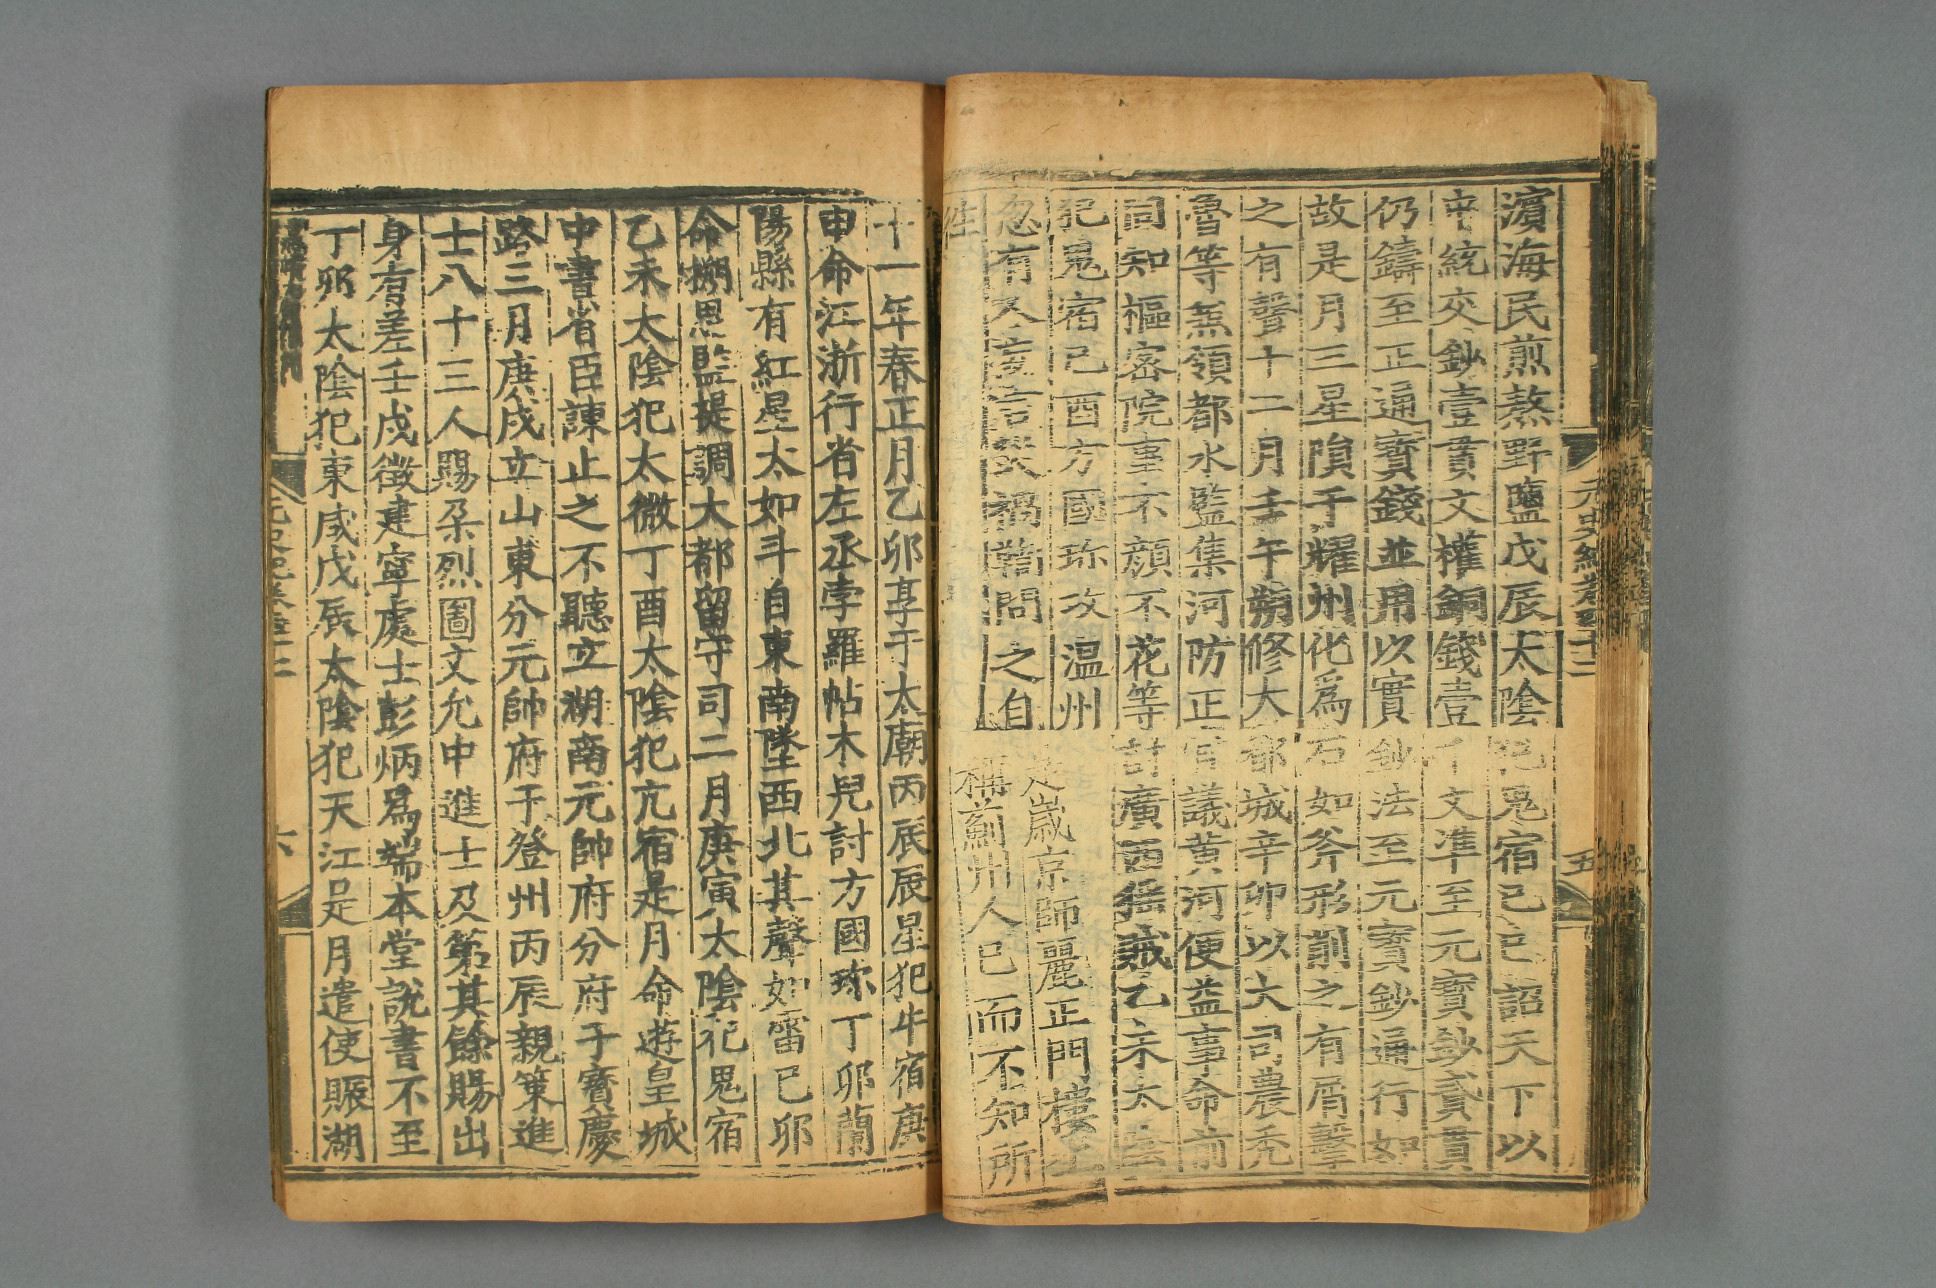 濵海民煎熬野鹽戊辰太陰犯鬼宿己巳詔天下以
中統交鈔壹貫文權銅錢壹千文準至元寳鈔貳貫
仍鑄至正通寳錢並用以實鈔法至元寳鈔通行如
故是月三星隕于耀州化爲石如斧形削之有屑擊
之有聲十二月壬午朔修大都城辛卯以大司農禿
魯等兼領都水監集河防正官議黄河便益事命前
同知樞密院事不顔不花等討廣西猺賊乙未太陰
犯鬼宿己酉方國珍攻温州是歲京師麗正門樓上
忽有人妄言災禍鞫問之自稱薊州人已而不知所
往
十一年春正月乙卯享于太廟丙辰辰星犯牛宿庚
申命江浙行省左丞孛羅帖木兒討方國珍丁卯蘭
陽縣有紅星大如斗自東南墜西北其聲如雷己卯
命搠思監提調大都留守司二月庚寅太陰犯鬼宿
乙未太陰犯太微丁酉太陰犯亢宿是月命遊皇城
中書省臣諫止之不聽立湖南元帥府分府于寳慶
路三月庚戌立山東分元帥府于登州丙辰親策進
士八十三人賜朶烈圖文允中進士及第其餘賜出
身有差壬戌徵建寧處士彭炳爲端本堂說書不至
丁卯太陰犯東咸戊辰太陰犯天江是月遣使賑湖
元史紀卷四十二
五
六